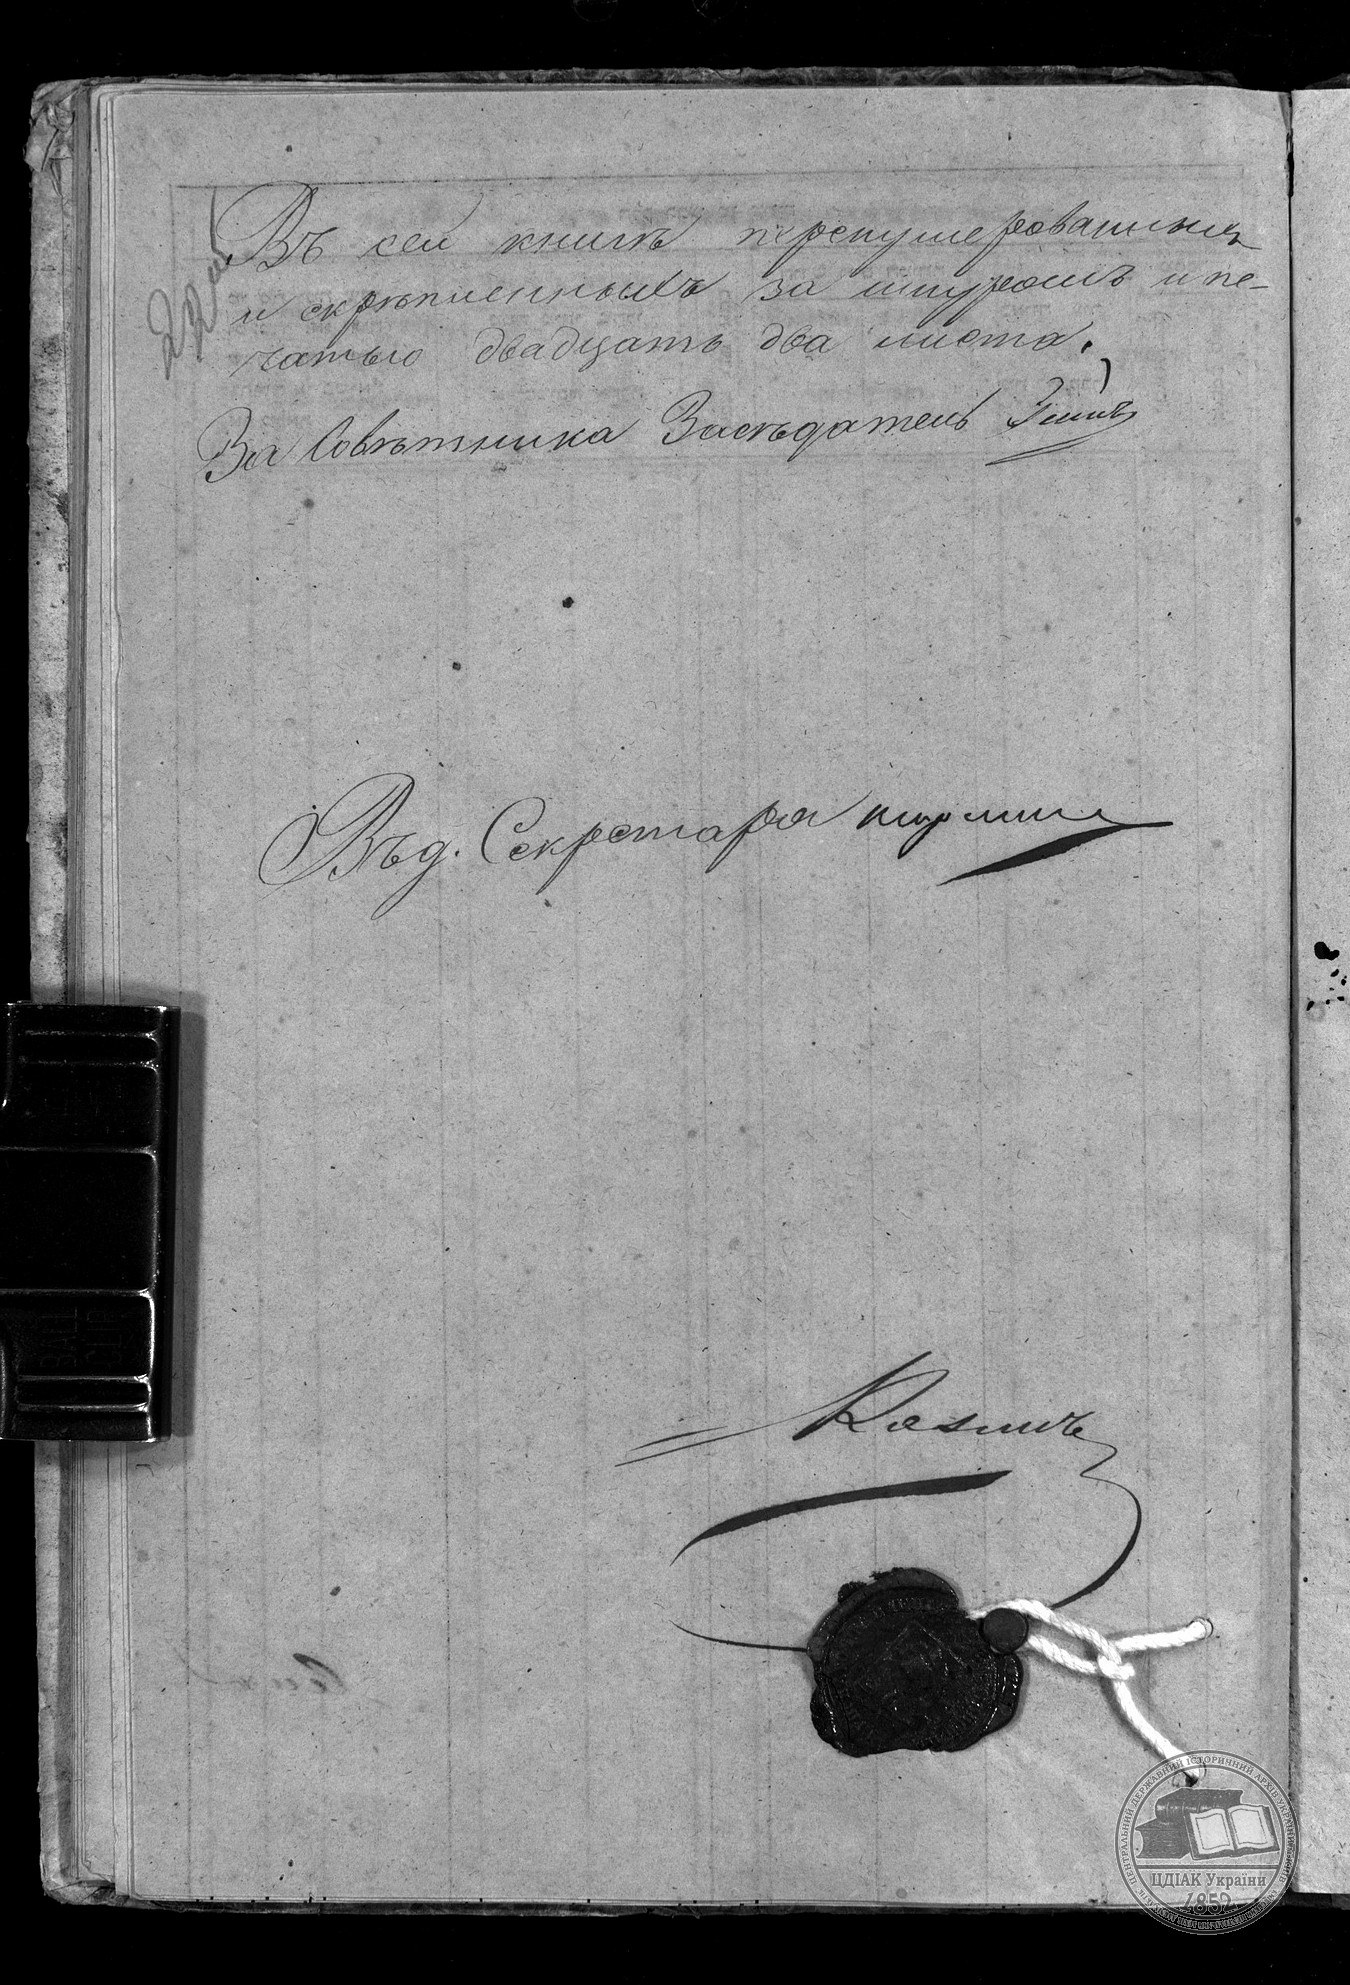 Въ сей книгѣ перенумерованныхъ
и скрѣпленныхъ за шнуромъ и пе-
чатью двадцать два листа.
За Совѣтника Засѣдатель
Въ д. Секретаря
ЦЕНТРАЛЬНИЙ ДЕРЖАВНИЙ ІСТОРИЧНИЙ АРХІВ УКРАЇНИ
ЦДІАК України
1852